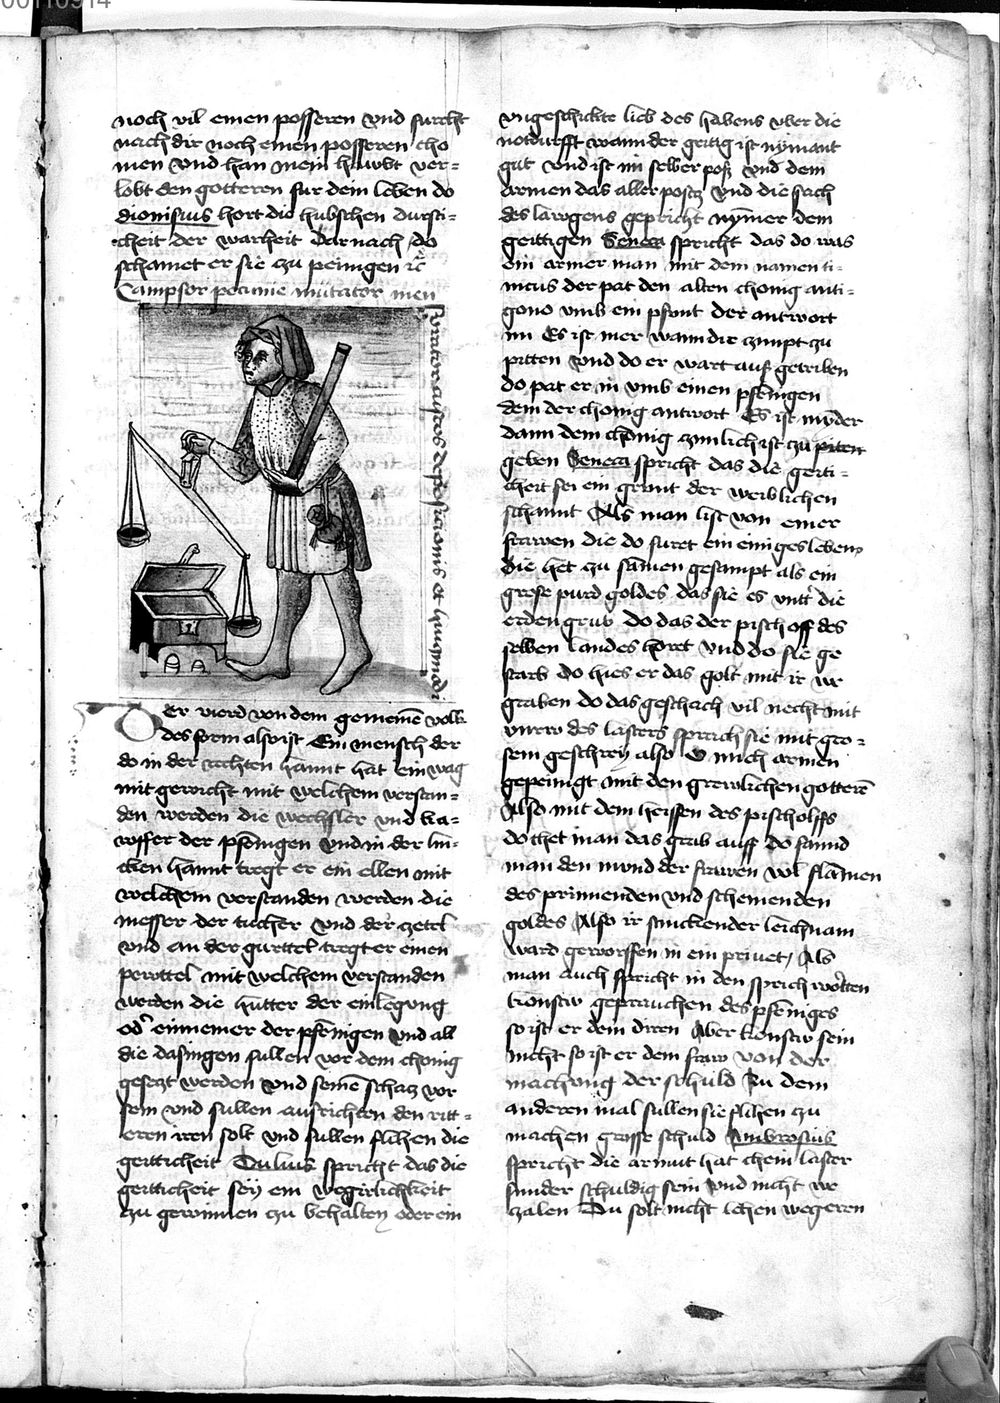 00110914
noch vil einen posseren vnd furcht
nach dir noch einen posseren cho
men vnd han mein hawbt ver=
lobt den gotteren fur dem leben do
dionisius hort die hubschen dursti=
cheit der warheit Darnach do
schamet er sie zu peinigen
Campsor pecunie mutator men
surator custos deposicionis et huiusmodi
Der vierd von dem gemeinē volk
des form also ist Ein mensch der
do in der rechten hannt hat ein wag
mit gewicht mit welchem verstan=
den werden die wechsler vnd ka=
wffer der pfēnigen vnd in der lin=
cken hannt tregt er ein ellen mit
welchem verstanden werden die
messer der tucher vnd der zetel
vnd an der gurttel tregt er einen
pewttel mit welchem verstanden
werden die hutter der einlegung
od' einnemer der pfēnigen vnd all
die dasingen sullen vor dem chonig
gesetzt werden vnd seinē schatz vor
sein vnd sullen ausrichten den ritt=
eren iren solt vnd sullen flihen die
geitticheit Tulius spricht das die
geitticheit seÿ ein begirlichkeit
zu gewinnen zu behalten oder ein
vngeschickte lieb des habens vber die
notdurfft wann der geitig ist nÿmant
gut vnd ist im selber pos vnd dem
armen das aller post vnd die sach
des laugens gepricht nÿmer dem
geittigen Seneca spricht das do was
ein armer man mit dem namen ti=
nicus der pat den alten chonig anti=
gono vmb ein pfunt der antwort
im Es ist mer wann dir zimpt zu
pitten vnd do er wart aus getriben
do pat er in vmb einen pfenigen
dem der chonig antwort Es ist mÿder
dann dem chonig zimlich ist zu piten
geben Seneca spricht das die geitti=
cheit sei ein grunt der weiblichen
schannt Als man list von einer
frawen die do furet ein einiges leben
die het zu samen gesampt als ein
grose purd goldes das sie es vntt' die
erden grub do das der pischoff des
selben landes horet vnd do sie ge
starb do hies er das golt mit ir ve
graben do das geschach vil necht mit
vnrew des lasters sprach sie mit gro=
sem geschreÿ also O mich armen
gepeinigt mit den grewlichen gotterē
Also mit dem heissen des pischolffs
do thet man das grab auff do fannd
man den mund der frawen vol flāmen
des prinnenden vnd scheinenden
goldes Also ir stinckender leichnam
ward geworffen in ein privet, Als
man auch spricht in den sprichwortten
konstu geprauchen des pfeniges
so ist er dein diren Aber konstu sein
nicht so ist er dein fraw von der
machung der schuld Zu dem
anderen mal sullen sie flihen zu
machen grosse schuld Ambrosius
spricht die armut hat chein laster
sunder schuldig sein vnd nicht we
zalen Du solt nicht lehen wegeren